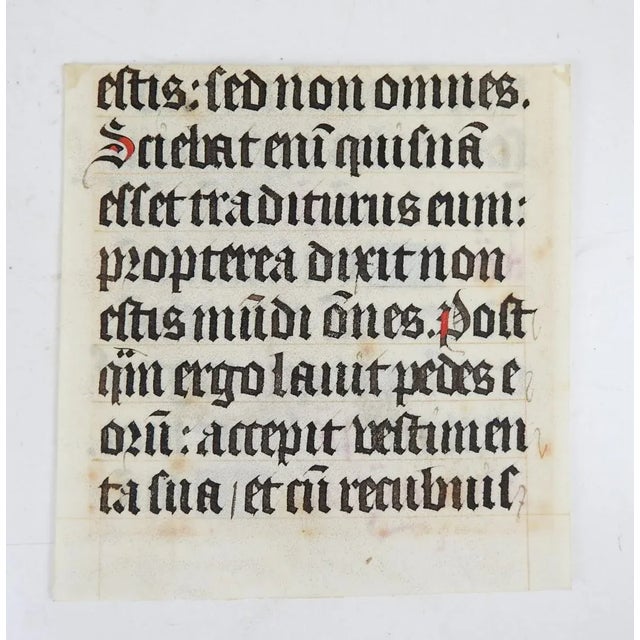 estis: sed non omnes.
Sciebat enī quisnā
esset traditurus eum:
propterea dixit non
estis mūdi ōnes. Post
q̄m ergo lavit pedes e
orū: accepit vestimen
ta sua / et cū recubuis